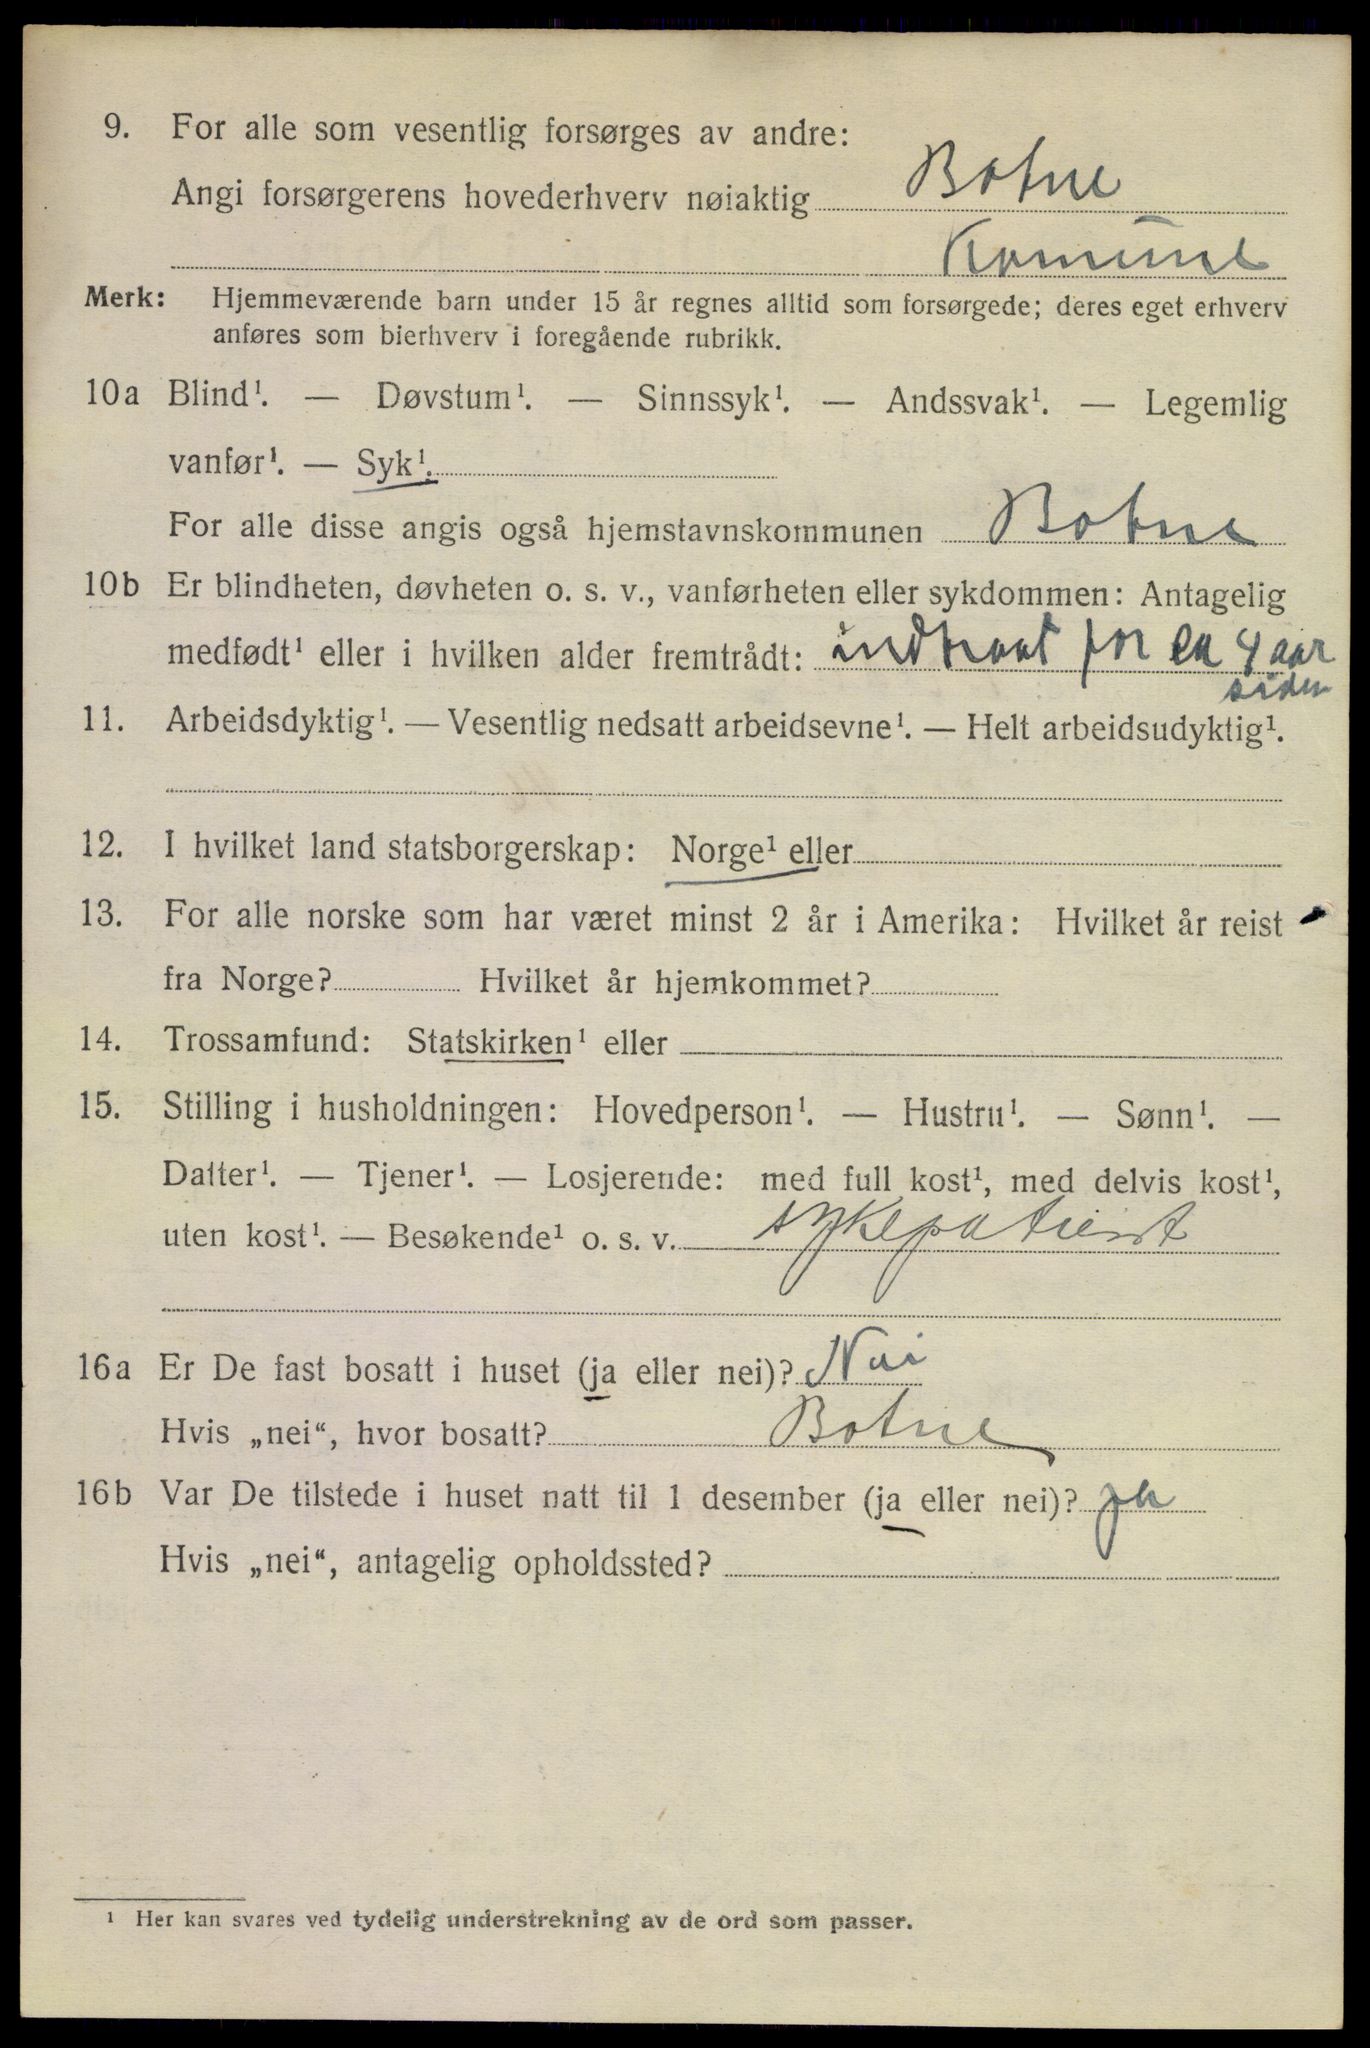 9. For alle som vesentlig forsørges av andre:
Angi forsørgerens hovederhverv nøiaktig Botne
Komune
Merk: Hjemmeværende barn under 15 år regnes alltid som forsørgede; deres eget erhverv
anføres som bierhverv i foregående rubrikk.
10a Blind¹. — Døvstum¹. — Sinnssyk¹. — Andssvak¹. — Legemlig
vanfør¹. — Syk¹.
For alle disse angis også hjemstavnskommunen Botne
10b Er blindheten, døvheten o. s. v., vanførheten eller sykdommen: Antagelig
medfødt¹ eller i hvilken alder fremtrådt: indtraat for ca 4 aar
siden
11. Arbeidsdyktig¹. — Vesentlig nedsatt arbeidsevne¹. — Helt arbeidsudyktig¹.
12. I hvilket land statsborgerskap: Norge¹ eller
13. For alle norske som har været minst 2 år i Amerika: Hvilket år reist
fra Norge? Hvilket år hjemkommet?
14. Trossamfund: Statskirken¹ eller
15. Stilling i husholdningen: Hovedperson¹. — Hustru¹. — Sønn¹. —
Datter¹. — Tjener¹. — Losjerende: med full kost¹, med delvis kost¹,
uten kost¹. — Besøkende¹ o. s. v. sykepatient
16a Er De fast bosatt i huset (ja eller nei)? Nei
Hvis „nei“, hvor bosatt? Botne
16b Var De tilstede i huset natt til 1 desember (ja eller nei)? ja
Hvis „nei“, antagelig opholdssted?
¹ Her kan svares ved tydelig understrekning av de ord som passer.